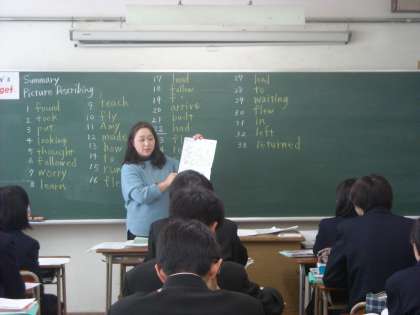 Summary
Picture Describing
1 found
2 took
3 put
4 looking
5 thought
6 followed
7 worry
8 learn
9 teach
10 fly
11 Amy
12 made
13 how
14 to
15 run
16 fl
17 lead
18 follow
19
20 arrive
21 built
22 had
23 f
27 lead
28 to
29 waiting
30 flew
31 in
32 left
33 returned
get.